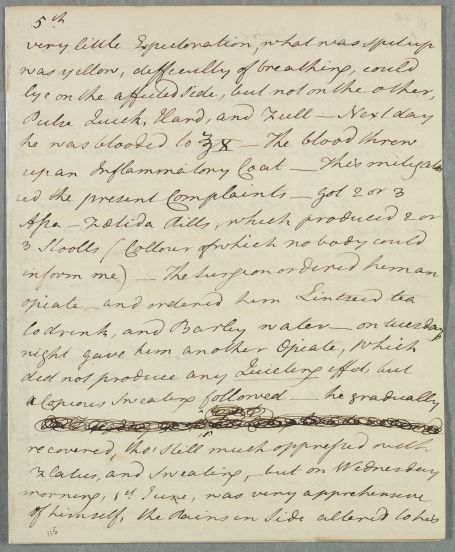 5th
very little Expectoration, what was spit up
was yellow, difficulty of breathing, could
lye on the affected side, but not on the other,
Pulse Quick, Hard, and Full — Next day
he was blooded to ℥X — The blood threw
up an Inflammatory Coat — This mitigat
ed the present Complaints — got 2 or 3
Asa-Fœtida Pills, which produced 2 or
3 Stools (Collour of which no body could
inform me) — The Surgeon ordered him an
opiate — and ordered him Lintseed tea
to drink, and Barley water — on tuesday
night gave him another Opiate, which
did not produce any Quieting effect, but
a Copious Sweating followed — he gradually
recovered, tho' still much oppressed with
Flatus, and Sweating, but on Wednesday
morning, 1st June, was very apprehensive
of himself, the Pains in Side altered to his
115